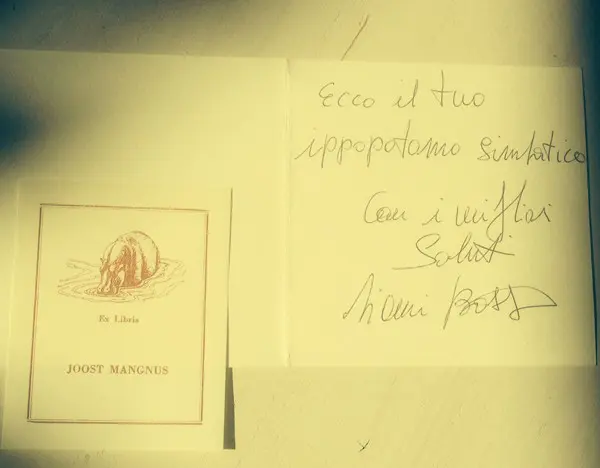 Ecco il tuo
ippopotamo simpatico
Con i migliori
Saluti
Ex Libris
JOOST MANGNUS